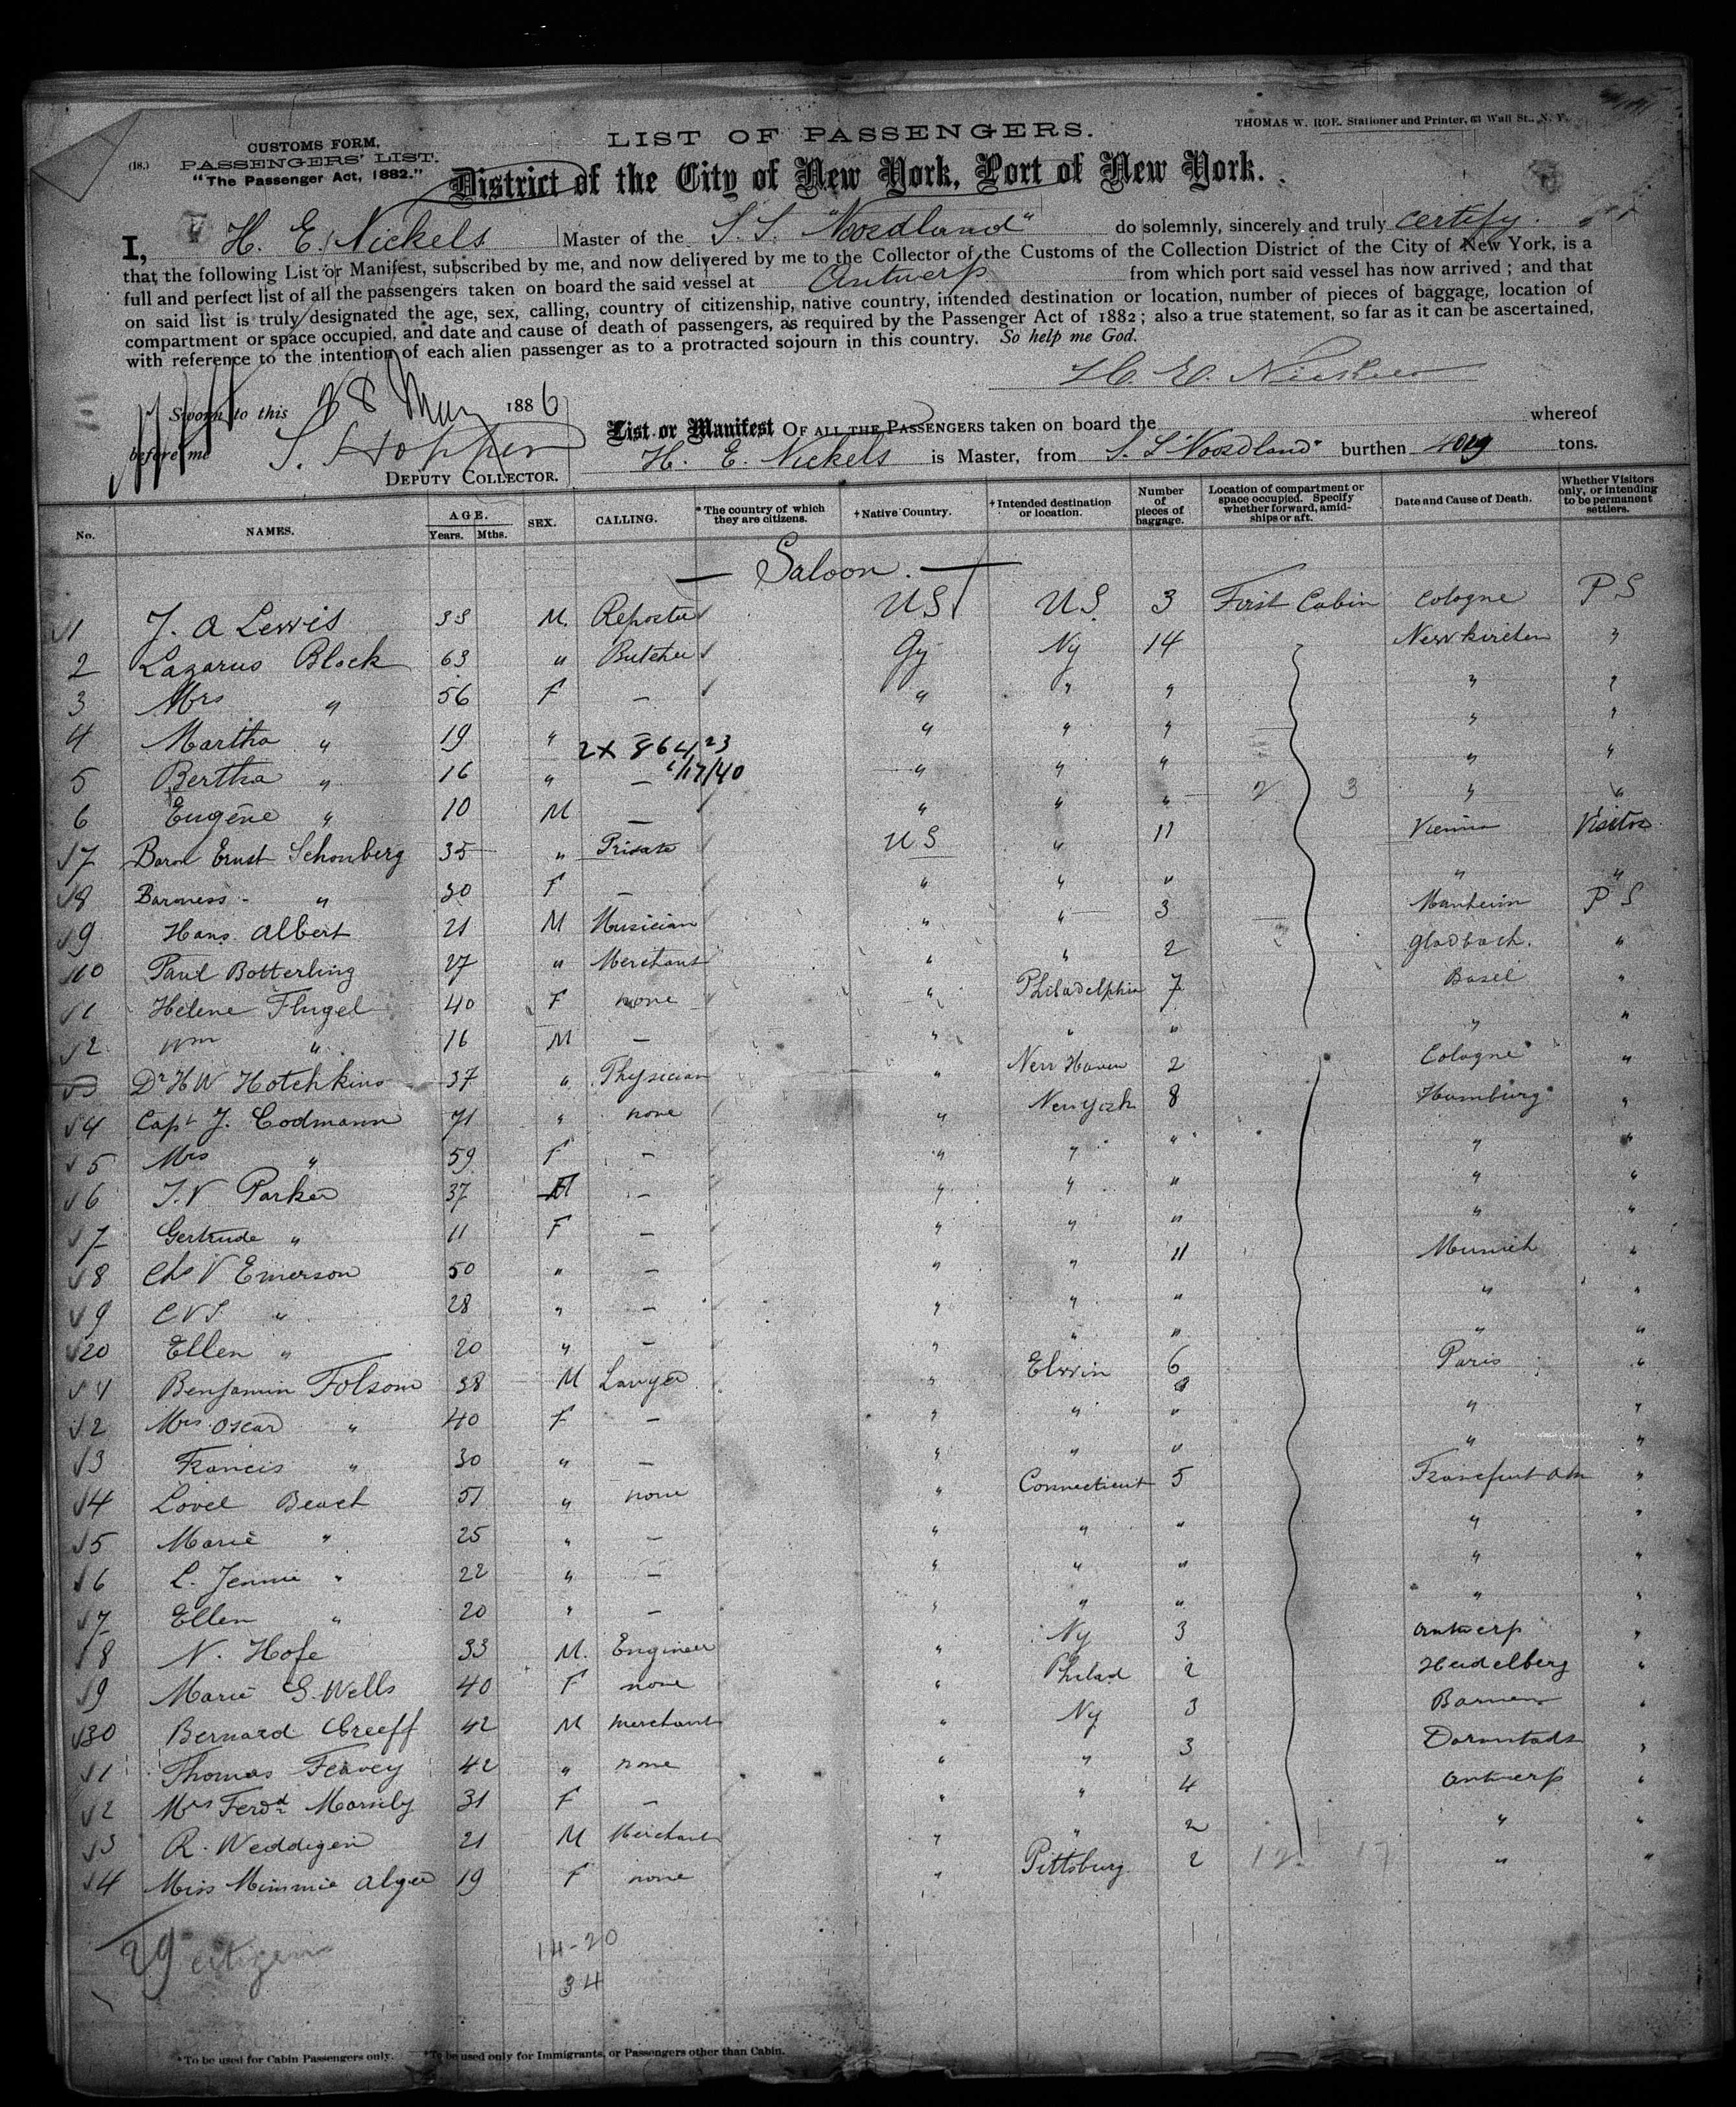 (18.)
CUSTOMS FORM.
PASSENGERS' LIST.
"The Passenger Act, 1882."
LIST OF PASSENGERS.
THOMAS W. ROE. Stationer and Printer, 63 Wall St., N. Y.
District of the City of New York, Port of New York.
I, H. E. Nickels Master of the S.S. "Noordland" do solemnly, sincerely and truly certify
that the following List or Manifest, subscribed by me, and now delivered by me to the Collector of the Customs of the Collection District of the City of New York, is a
full and perfect list of all the passengers taken on board the said vessel at Antwerp from which port said vessel has now arrived; and that
on said list is truly designated the age, sex, calling, country of citizenship, native country, intended destination or location, number of pieces of baggage, location of
compartment or space occupied, and date and cause of death of passengers, as required by the Passenger Act of 1882; also a true statement, so far as it can be ascertained,
with reference to the intention of each alien passenger as to a protracted sojourn in this country. So help me God.
H. E. Nickels
Sworn to this 28 May 1886
before me S. Hopper
DEPUTY COLLECTOR.
List or Manifest OF ALL THE PASSENGERS taken on board the whereof
H. E. Nickels is Master, from S. S "Noordland" burthen tons.
No. NAMES. AGE. Years. Mths. SEX. CALLING. * The country of which they are citizens. † Native Country. † Intended destination or location. Number of pieces of baggage. Location of compartment or space occupied. Specify whether forward, amidships or aft. Date and Cause of Death. Whether Visitors only, or intending to be permanent settlers.
— Saloon. —
1 J. A Lewis 33 M. Reporter US US 3 First Cabin Cologne P S
2 Lazarus Block 63 " Butcher Gy Ny 14 Newkirchen "
3 Mrs " 56 F — " " " " "
4 Martha " 19 " — " " " " "
2X 864/23
5 Bertha " 16 " — " " " " "
6/17/40
6 Eugene " 10 M — " " " 2 3 " "
7 Baron Ernst Schonberg 35 " Private US " 11 Vienna Visitors
8 Baroness " 30 F — " " " " "
9 Hans Albert 21 M Musician " " 3 Manheim P S
10 Paul Botterling 27 " Merchant " " 2 Gladbach. "
1 Helene Flugel 40 F none " Philadelphia 7 Basel "
2 Wm " 16 M — " " " " "
3 Dr H W Hotchkins 37 " Physician " New Haven 2 Cologne "
4 Capt J. Codmann 71 " none " New York 8 Hamburg "
5 Mrs " 59 F — " " " " "
6 T. V Parker 37 M — " " " " "
7 Gertrude " 11 F — " " " " "
8 Chs V Emerson 50 " — " " 11 Munich "
9 C V S " 28 " — " " " " "
20 Ellen " 20 " — " " " " "
1 Benjamin Folsom 38 M Lawyer " Elwin 6 Paris "
2 Mrs Oscar " 40 F — " " " " "
3 Francis " 30 " — " " " " "
4 Lovel Beach 51 " none " Connecticut 5 Francfurt a/m "
5 Marie " 25 " — " " " " "
6 L. Jennie " 22 " — " " " " "
7 Ellen " 20 " — " " " " "
8 N. Hofe 33 M. Engineer " Ny 3 Antwerp "
9 Marie S. Wells 40 F none " Philad 2 Heidelberg "
30 Bernard Greeff 42 M Merchant " Ny 3 Barmen "
1 Thomas Feavey 42 " none " " 3 Darmstadt "
2 Mrs Ferdd 31 F — " " 4 Antwerp "
3 R. Weddigen 21 M Merchant " " 2 " "
4 Miss Mimmie Alger 19 F none " Pittsburg 2 12 17 " "
29 citizens
14-20
34
*To be used for Cabin Passengers only. †To be used only for Immigrants, or Passengers other than Cabin.